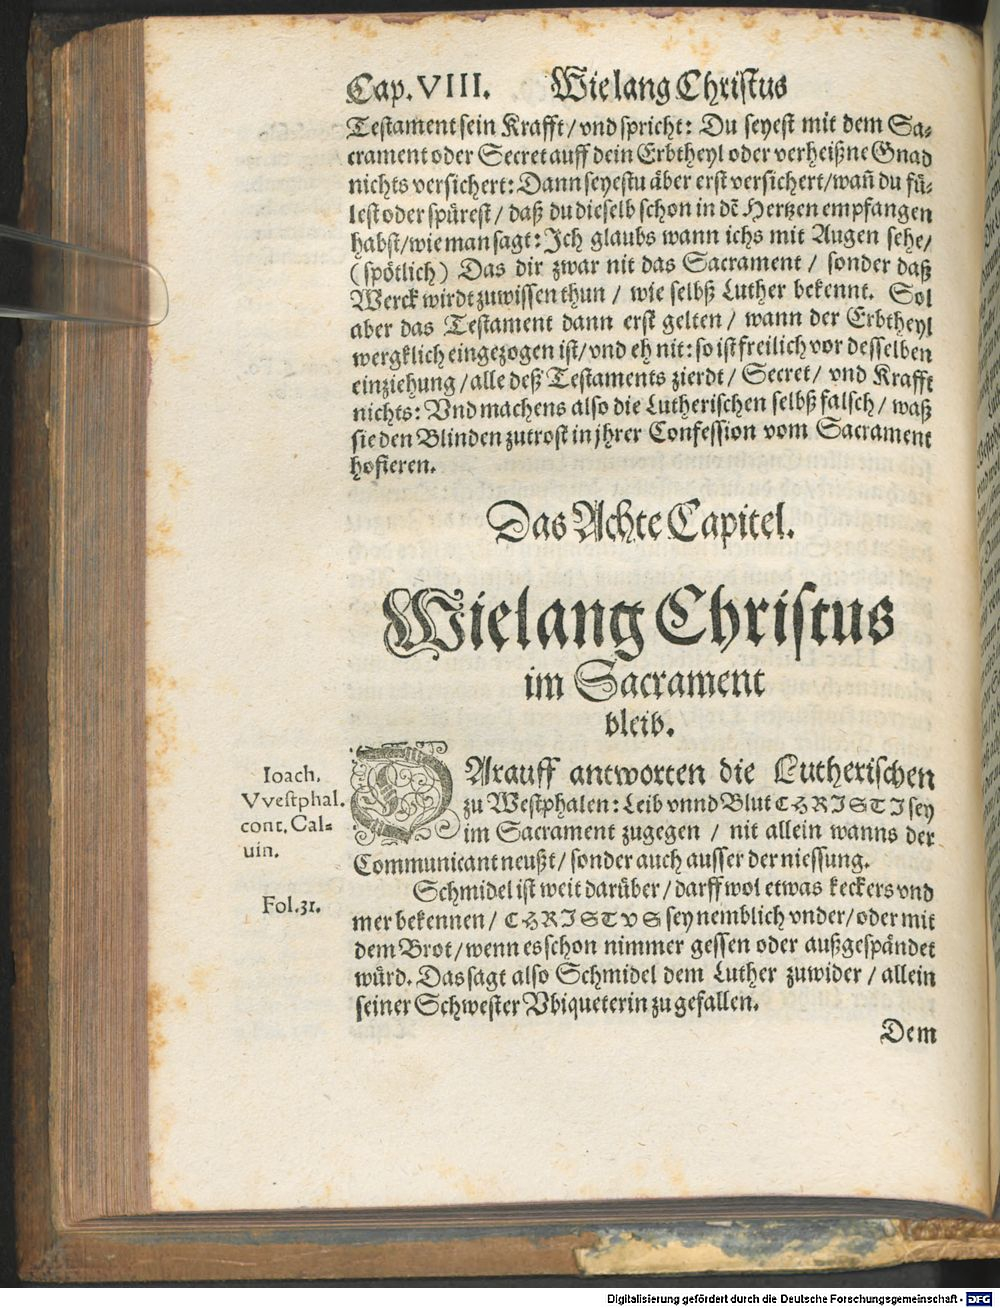 Cap. VIII. Wielang Christus
Testament sein Krafft / vnd spricht: Du seyest mit dem Sa⸗
crament oder Secret auff dein Erbtheyl oder verheißne Gnad
nichts versichert: Dann seyestu aber erst versichert / wañ du fü⸗
lest oder spürest / daß du dieselb schon in dē Hertzen empfangen
habst / wie man sagt: Ich glaubs wann ichs mit Augen sehe /
(spötlich) Das dir zwar nit das Sacrament / sonder daß
Werck wirdt zuwissen thun / wie selbß Luther bekennt. Sol
aber das Testament dann erst gelten / wann der Erbtheyl
wergklich eingezogen ist / vnd eh nit: so ist freilich vor desselben
einziehung / alle deß Testaments zierdt / Secret / vnd Krafft
nichts: Vnd machens also die Lutherischen selbß falsch / waß
sie den Blinden zutrost in jhrer Confession vom Sacrament
hofieren.
Das Achte Capitel.
Wielang Christus
im Sacrament
bleib.
Ioach.
Vvestphal.
cont. Cal⸗
uin.
DArauff antworten die Lutherischen
zu Westphalen: Leib vnnd Blut CHRISTI sey
im Sacrament zugegen / nit allein wanns der
Communicant neußt / sonder auch ausser der niessung.
Fol. 31.
Schmidel ist weit darüber / darff wol etwas keckers vnd
mer bekennen / CHRISTVS sey nemblich vnder / oder mit
dem Brot / wenn es schon nimmer gessen oder außgespändet
würd. Das sagt also Schmidel dem Luther zuwider / allein
seiner Schwester Vbiqueterin zu gefallen.
Dem
Digitalisierung gefördert durch die Deutsche Forschungsgemeinschaft - DFG